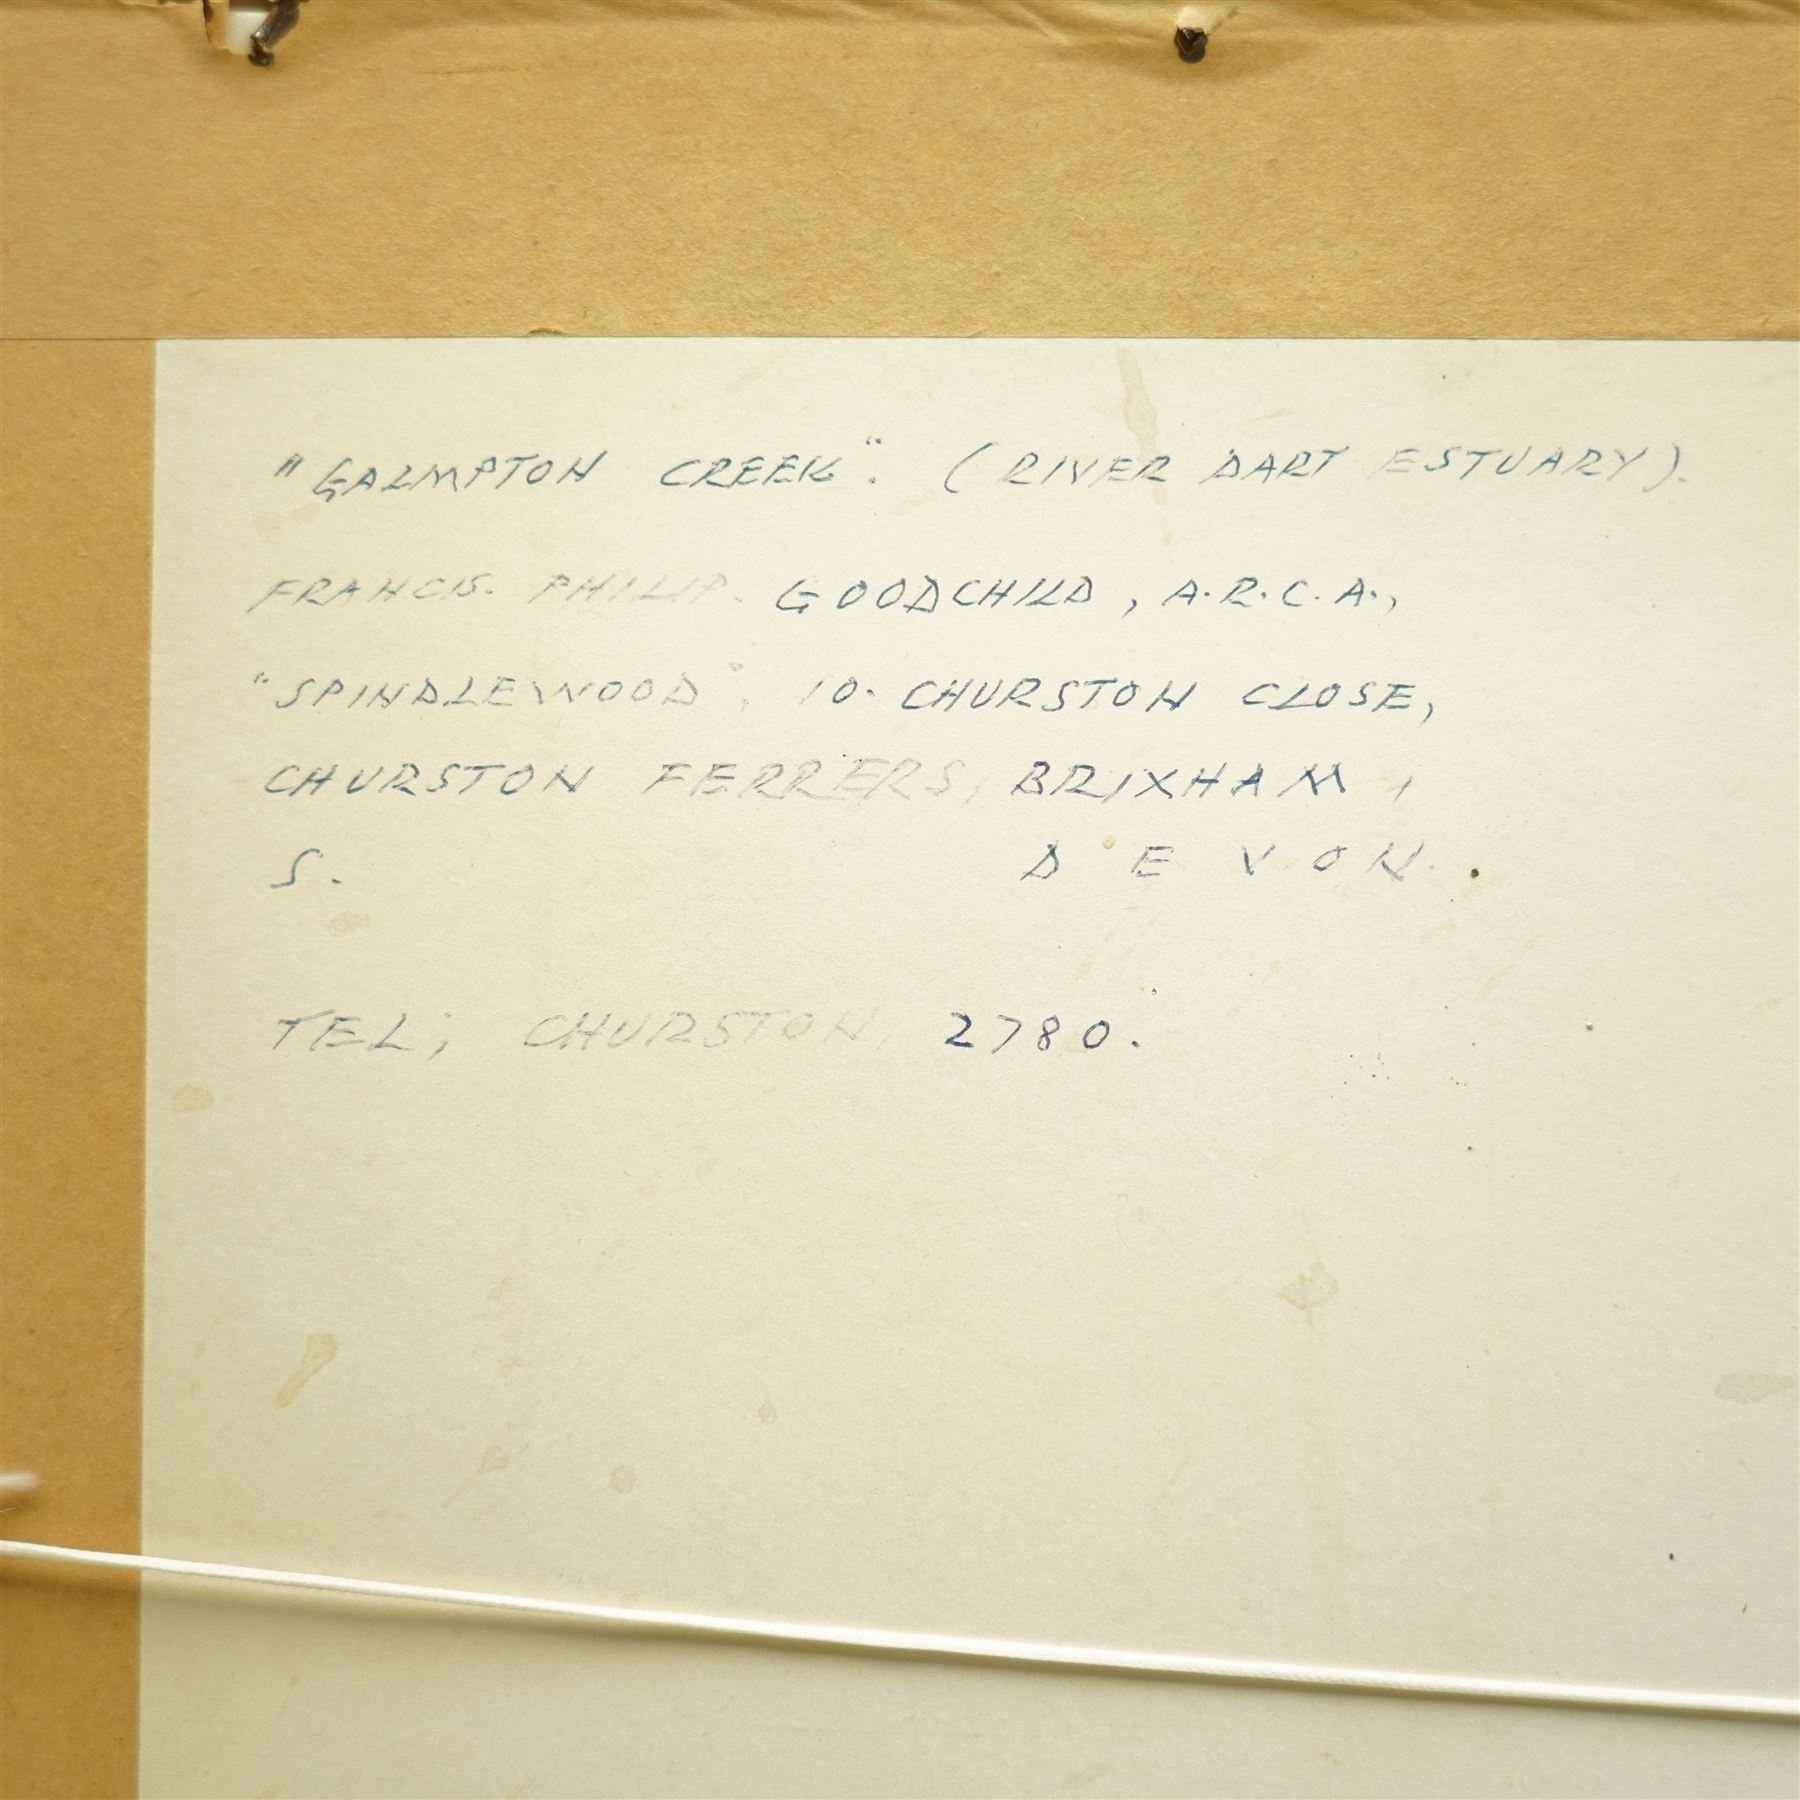 "GALMPTON CREEK". (RIVER DART ESTUARY).
FRANCIS. PHILIP. GOODCHILD, A.R.C.A.,
"SPINDLEWOOD", 10. CHURSTON CLOSE,
CHURSTON FERRERS, BRIXHAM,
S. DEVON.
TEL; CHURSTON 2780.